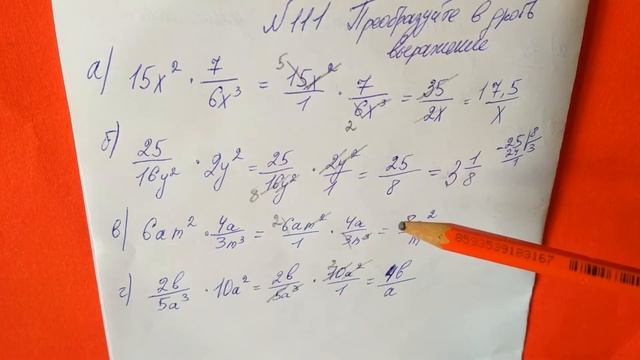 N 111 Преобразуйте в дробь
выражение
а) 15x² · 7/6x³ = 15x²/1 · 7/6x³ = 35/2x = 17,5/x
б) 25/16y² · 2y² = 25/16y² · 2y²/1 = 25/8 = 3 1/8
в) 6am² · 4a/3m³ = 6am²/1 · 4a/3m³ =
г) 2b/5a³ · 10a² = 2b/5a³ · 10a²/1 = 4b/a
8593539183167